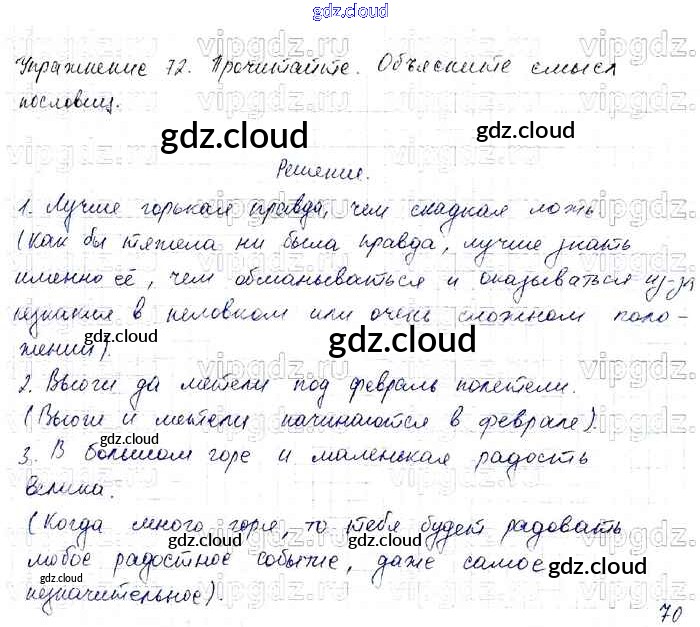 gdz.cloud
Упражнение 72. Прочитайте. Объясните смысл
пословиц.
gdz.cloud
gdz.cloud
Решение.
1. Лучше горькая правда, чем сладкая ложь
(Как бы тяжела ни была правда, лучше знать
именно её, чем обманываться и оказываться из-за
незнания в неловком или очень сложном поло-
жении).
gdz.cloud
gdz.cloud
2. Вьюги да метели под февраль полетели.
(Вьюги и метели начинаются в феврале).
gdz.cloud
3. В большом горе и маленькая радость
велика.
(Когда много горя, то тебя будет радовать
gdz.cloud
gdz.cloud
любое радостное событие, даже самое
gdz.cloud
gdz.cloud
незначительное).
70